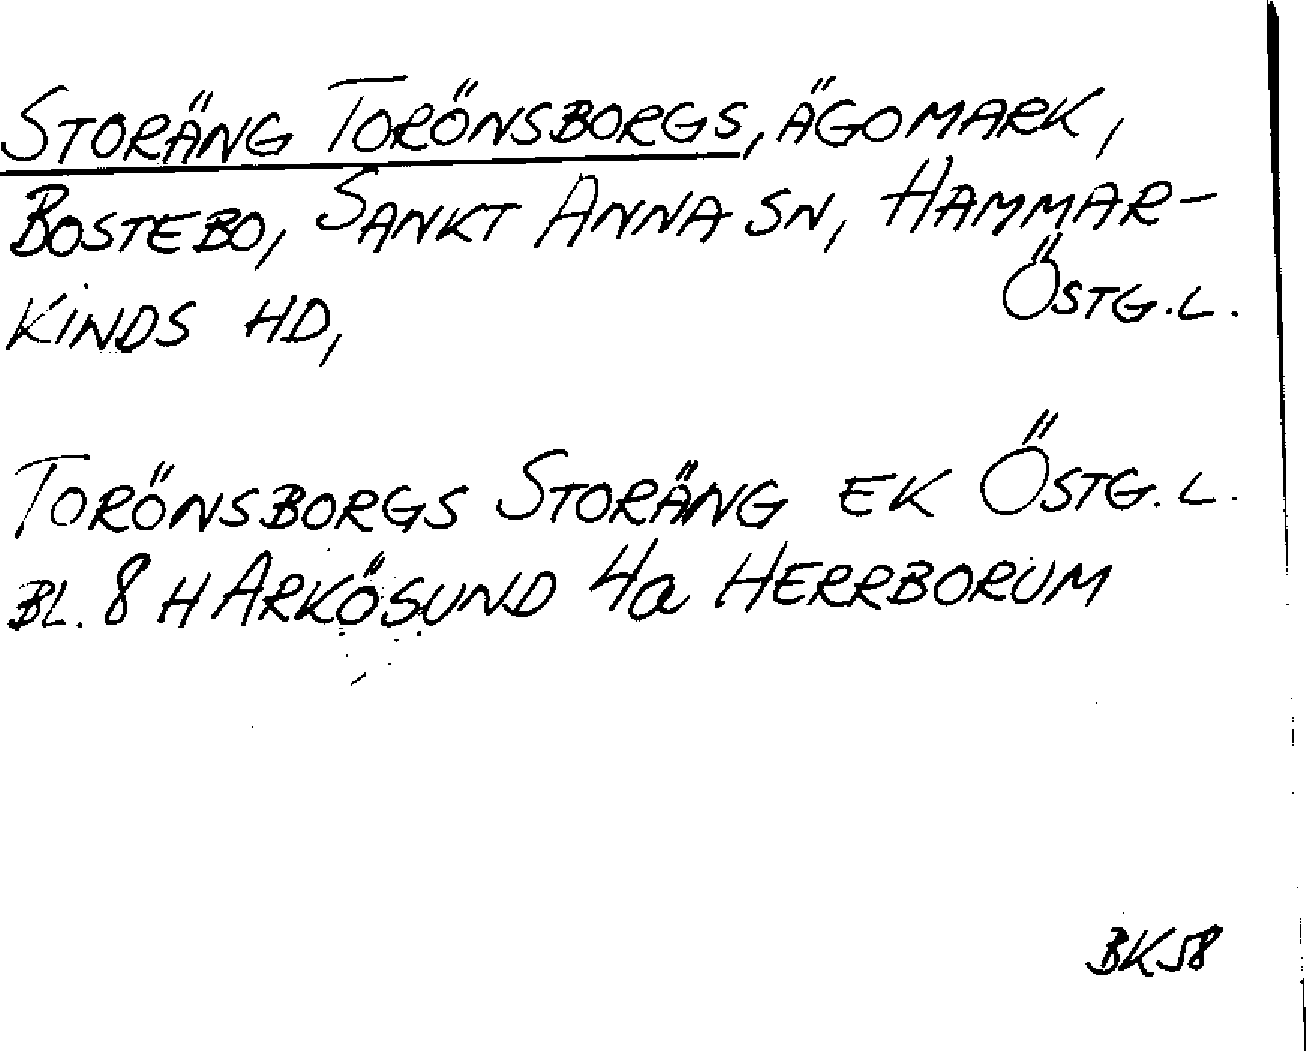 STORÄNG TORÖNSBORGS, ÄGOMARK,
BOSTEBO, SANKT ANNA SN, HAMMAR-
KINDS HD, ÖSTG.L.
TORÖNSBORGS STORÄNG EK ÖSTG.L.
BL. 8 H ARKÖSUND 4a HERRBORUM
BK58